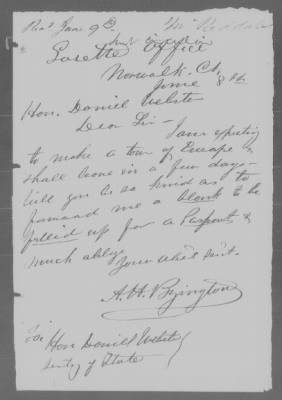 Recd June 9th
Gazette Office
Norwalk, Ct,
June 8 th.
Hon. Daniel Webster
Dear Sir - I am expecting
to make a tour of Europe &
shall leave in a few days -
Will you be so kind as to
forward me a blank to be
filled up for a Pasport, &
much oblige
Your obt. Svt.
A. H. Byington
To Hon Daniel Webster
Secty of State